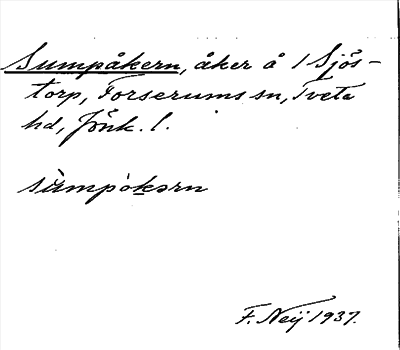 Sumpåkern, åker å 1 Sjös-
torp, Forserums sn, Tveta
hd, Jönk. l.
sùmpòkərn
F. Neij 1937.